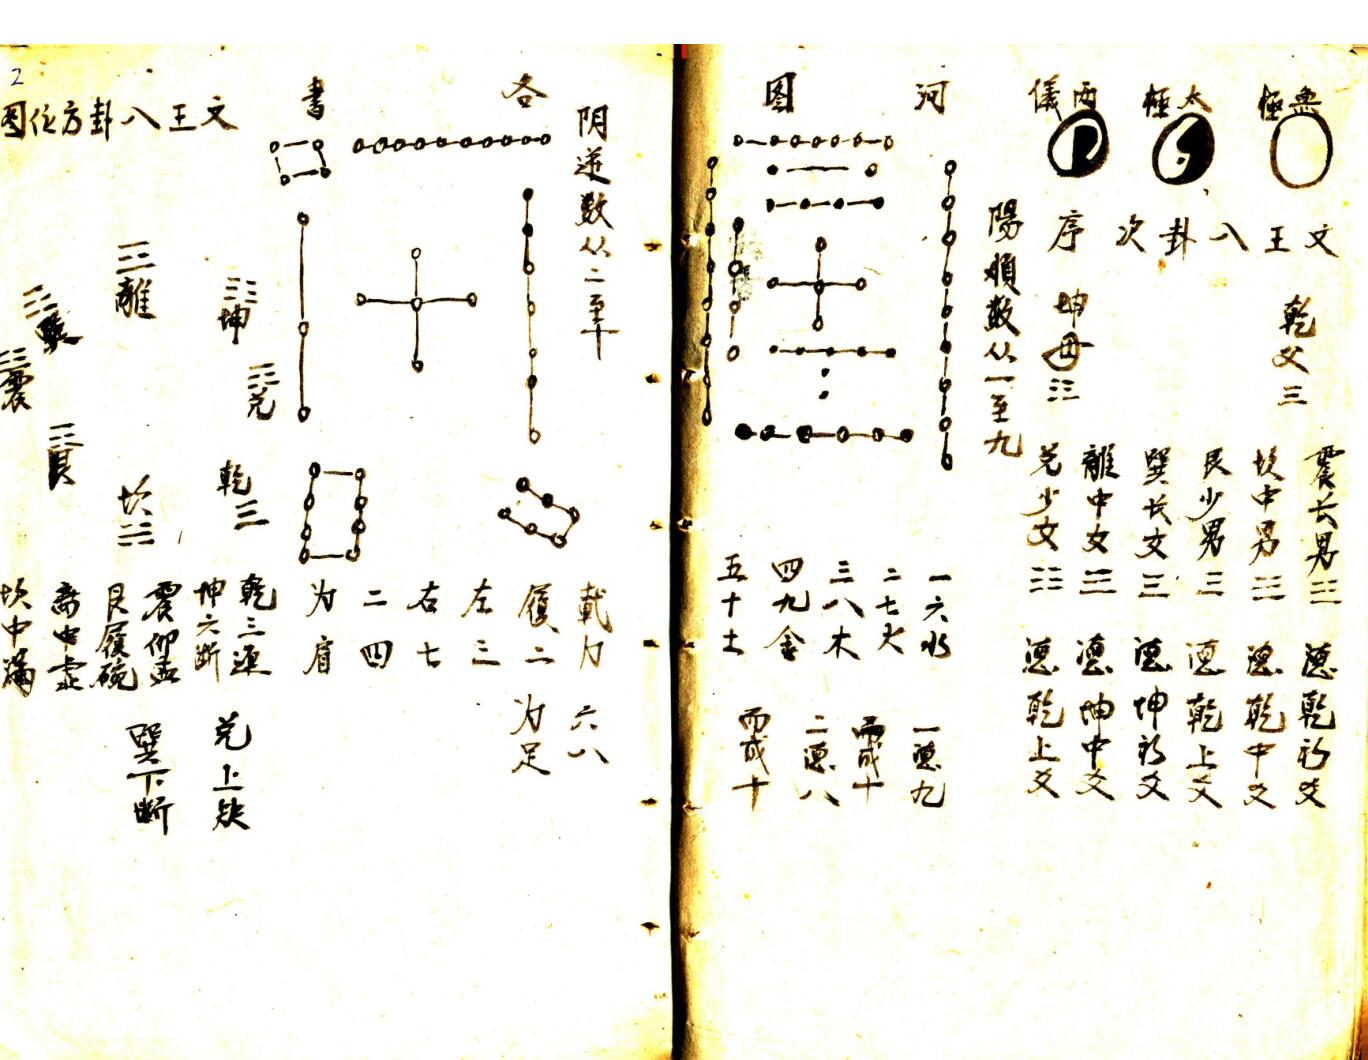 無極
太極
両儀
文王八卦次序
乾父☰
坤母☷
震长男☳
坎中男☵
艮少男☶
巽长女☴
離中女☲
兑少女☱
乾初爻
乾中爻
乾上爻
坤初爻
坤中爻
乾上爻
陽順数从一至九
河图
一六水
二七火
三八木
四九金
五十土
一 九
而成十
二 八
而成十
阴逆数从二至十
各書
載九
履二
左三
右七
二四
为肩
六八
为足
文王八卦方位图
離☲
坤☷
兑☱
乾☰
坎☵
艮☶
震☳
乾三連
坤六断
震仰盂
艮履碗
离中虚
坎中满
兑上缺
巽下断
2